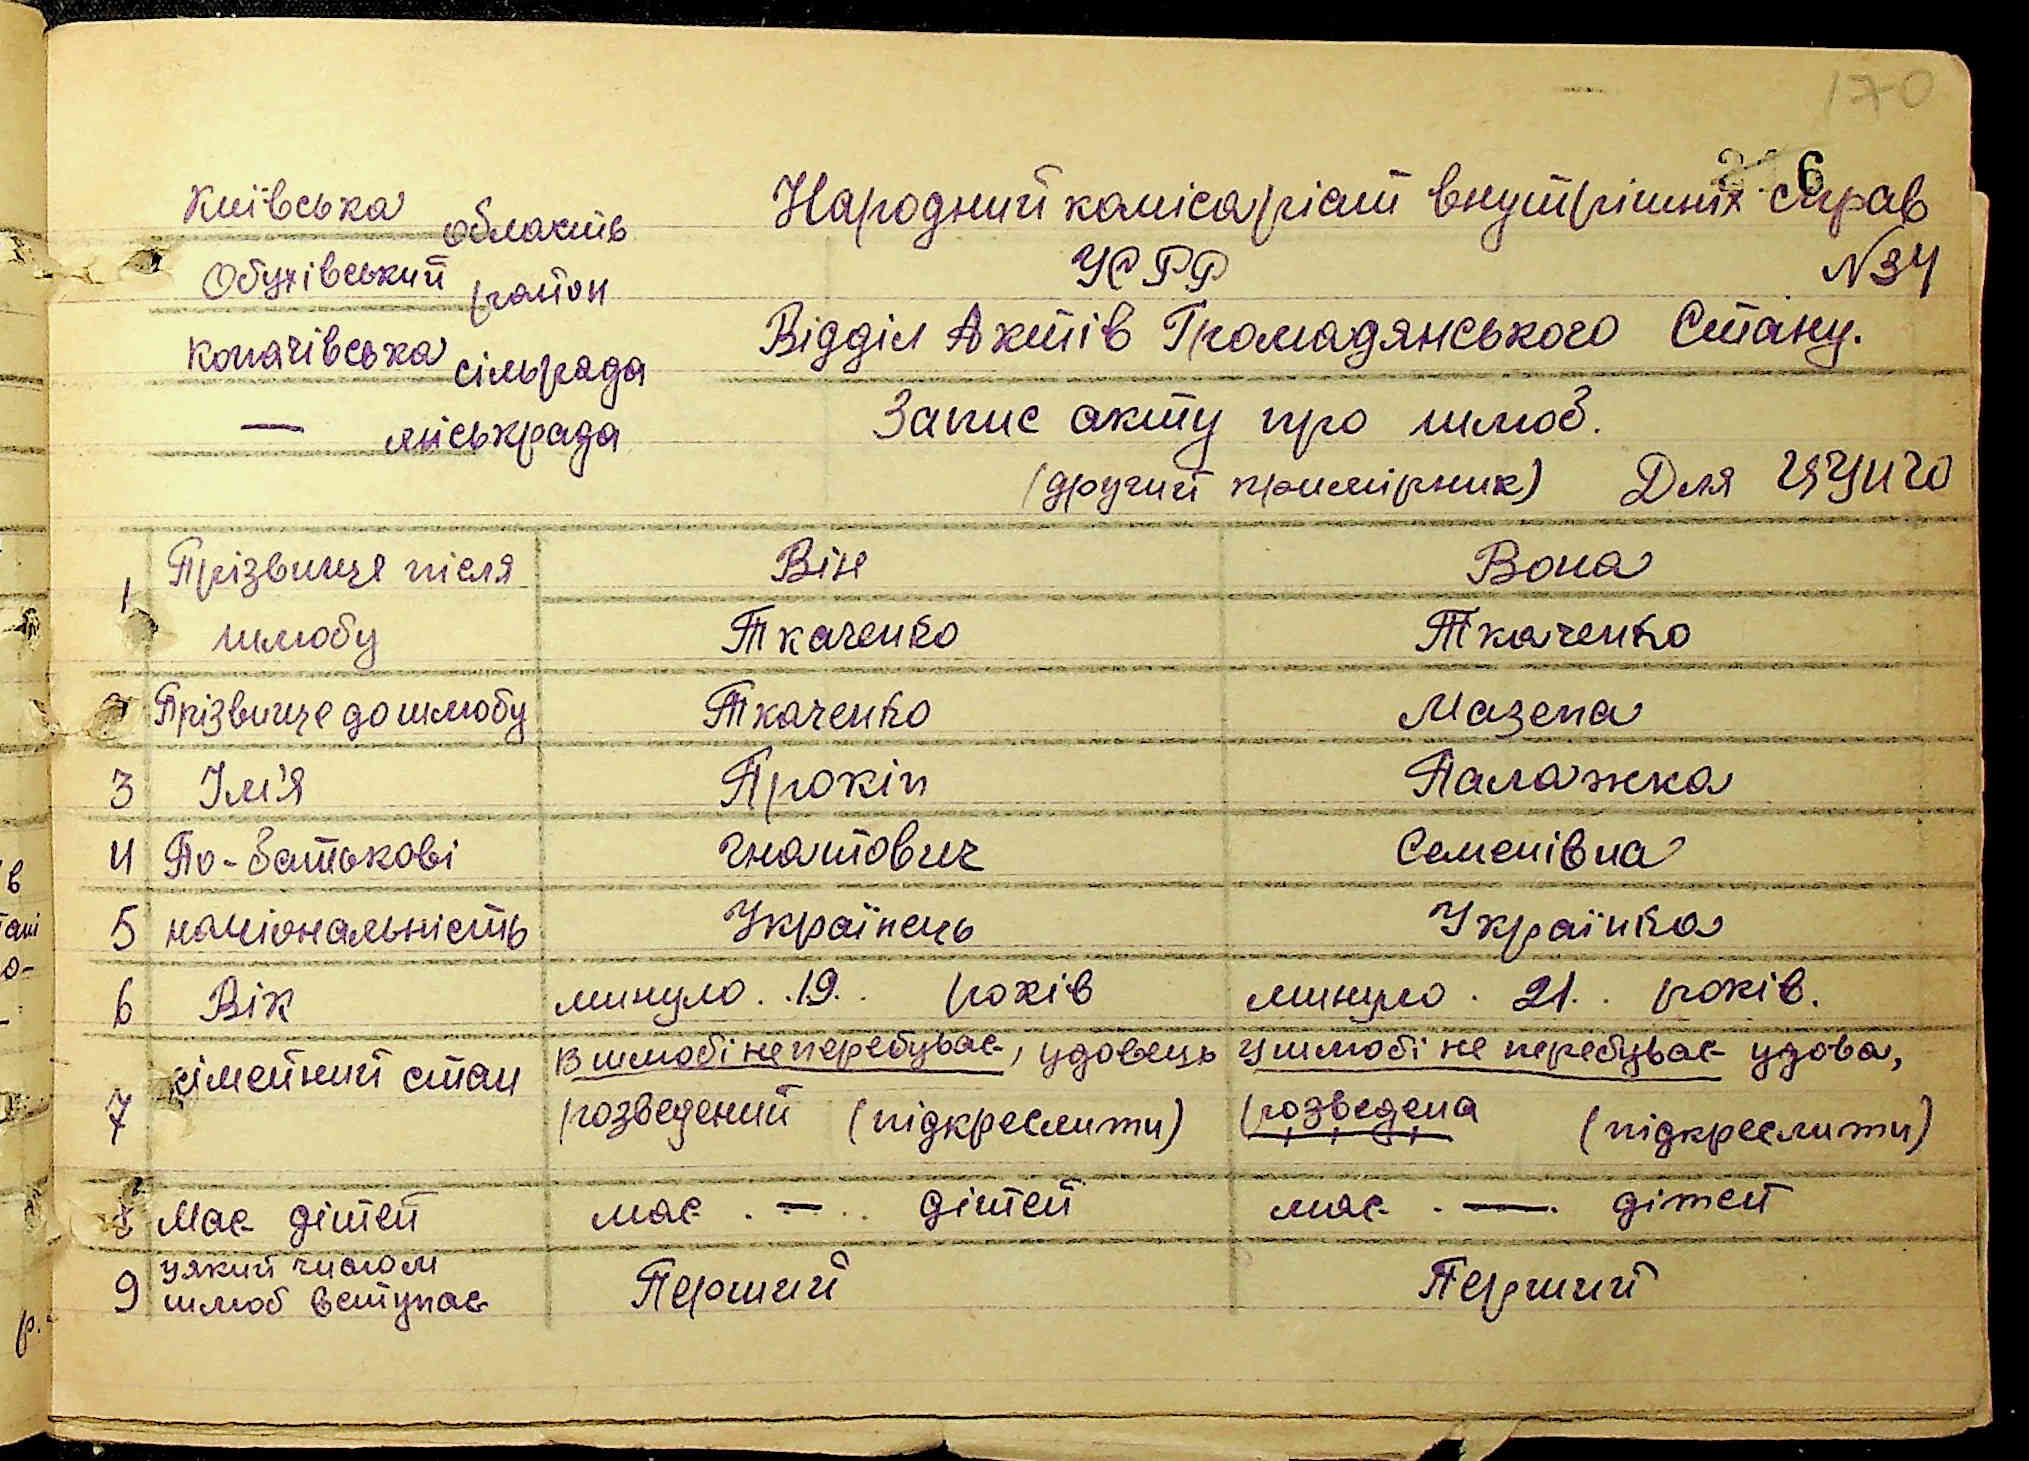 170
216
Київська область
Обухівський район
Копачівська сільрада
— міськрада
Народний комісаріат внутрішніх справ
УСРР
N34
Відділ Актів Громадянського Стану.
Запис акту про шлюб.
(другий примірник) Для ЦУНГО
1 Прізвище після шлюбу
Він Вона
Ткаченко Ткаченко
2 Прізвище до шлюбу Ткаченко Мазепа
3 Ім'я Прокіп Палажка
4 По-батькові Гнатович Семенівна
5 національність Українець Українка
6 Вік минуло . . 19 . . років минуло . 21 . . років.
7 сімейний стан В шлюбі не перебуває, удовець У шлюбі не перебуває удова,
розведений (підкреслити) розведена (підкреслити)
8 Має дітей має . — . . дітей має . — . дітей
9 у який числом
шлюб вступає Перший Перший
в
р.